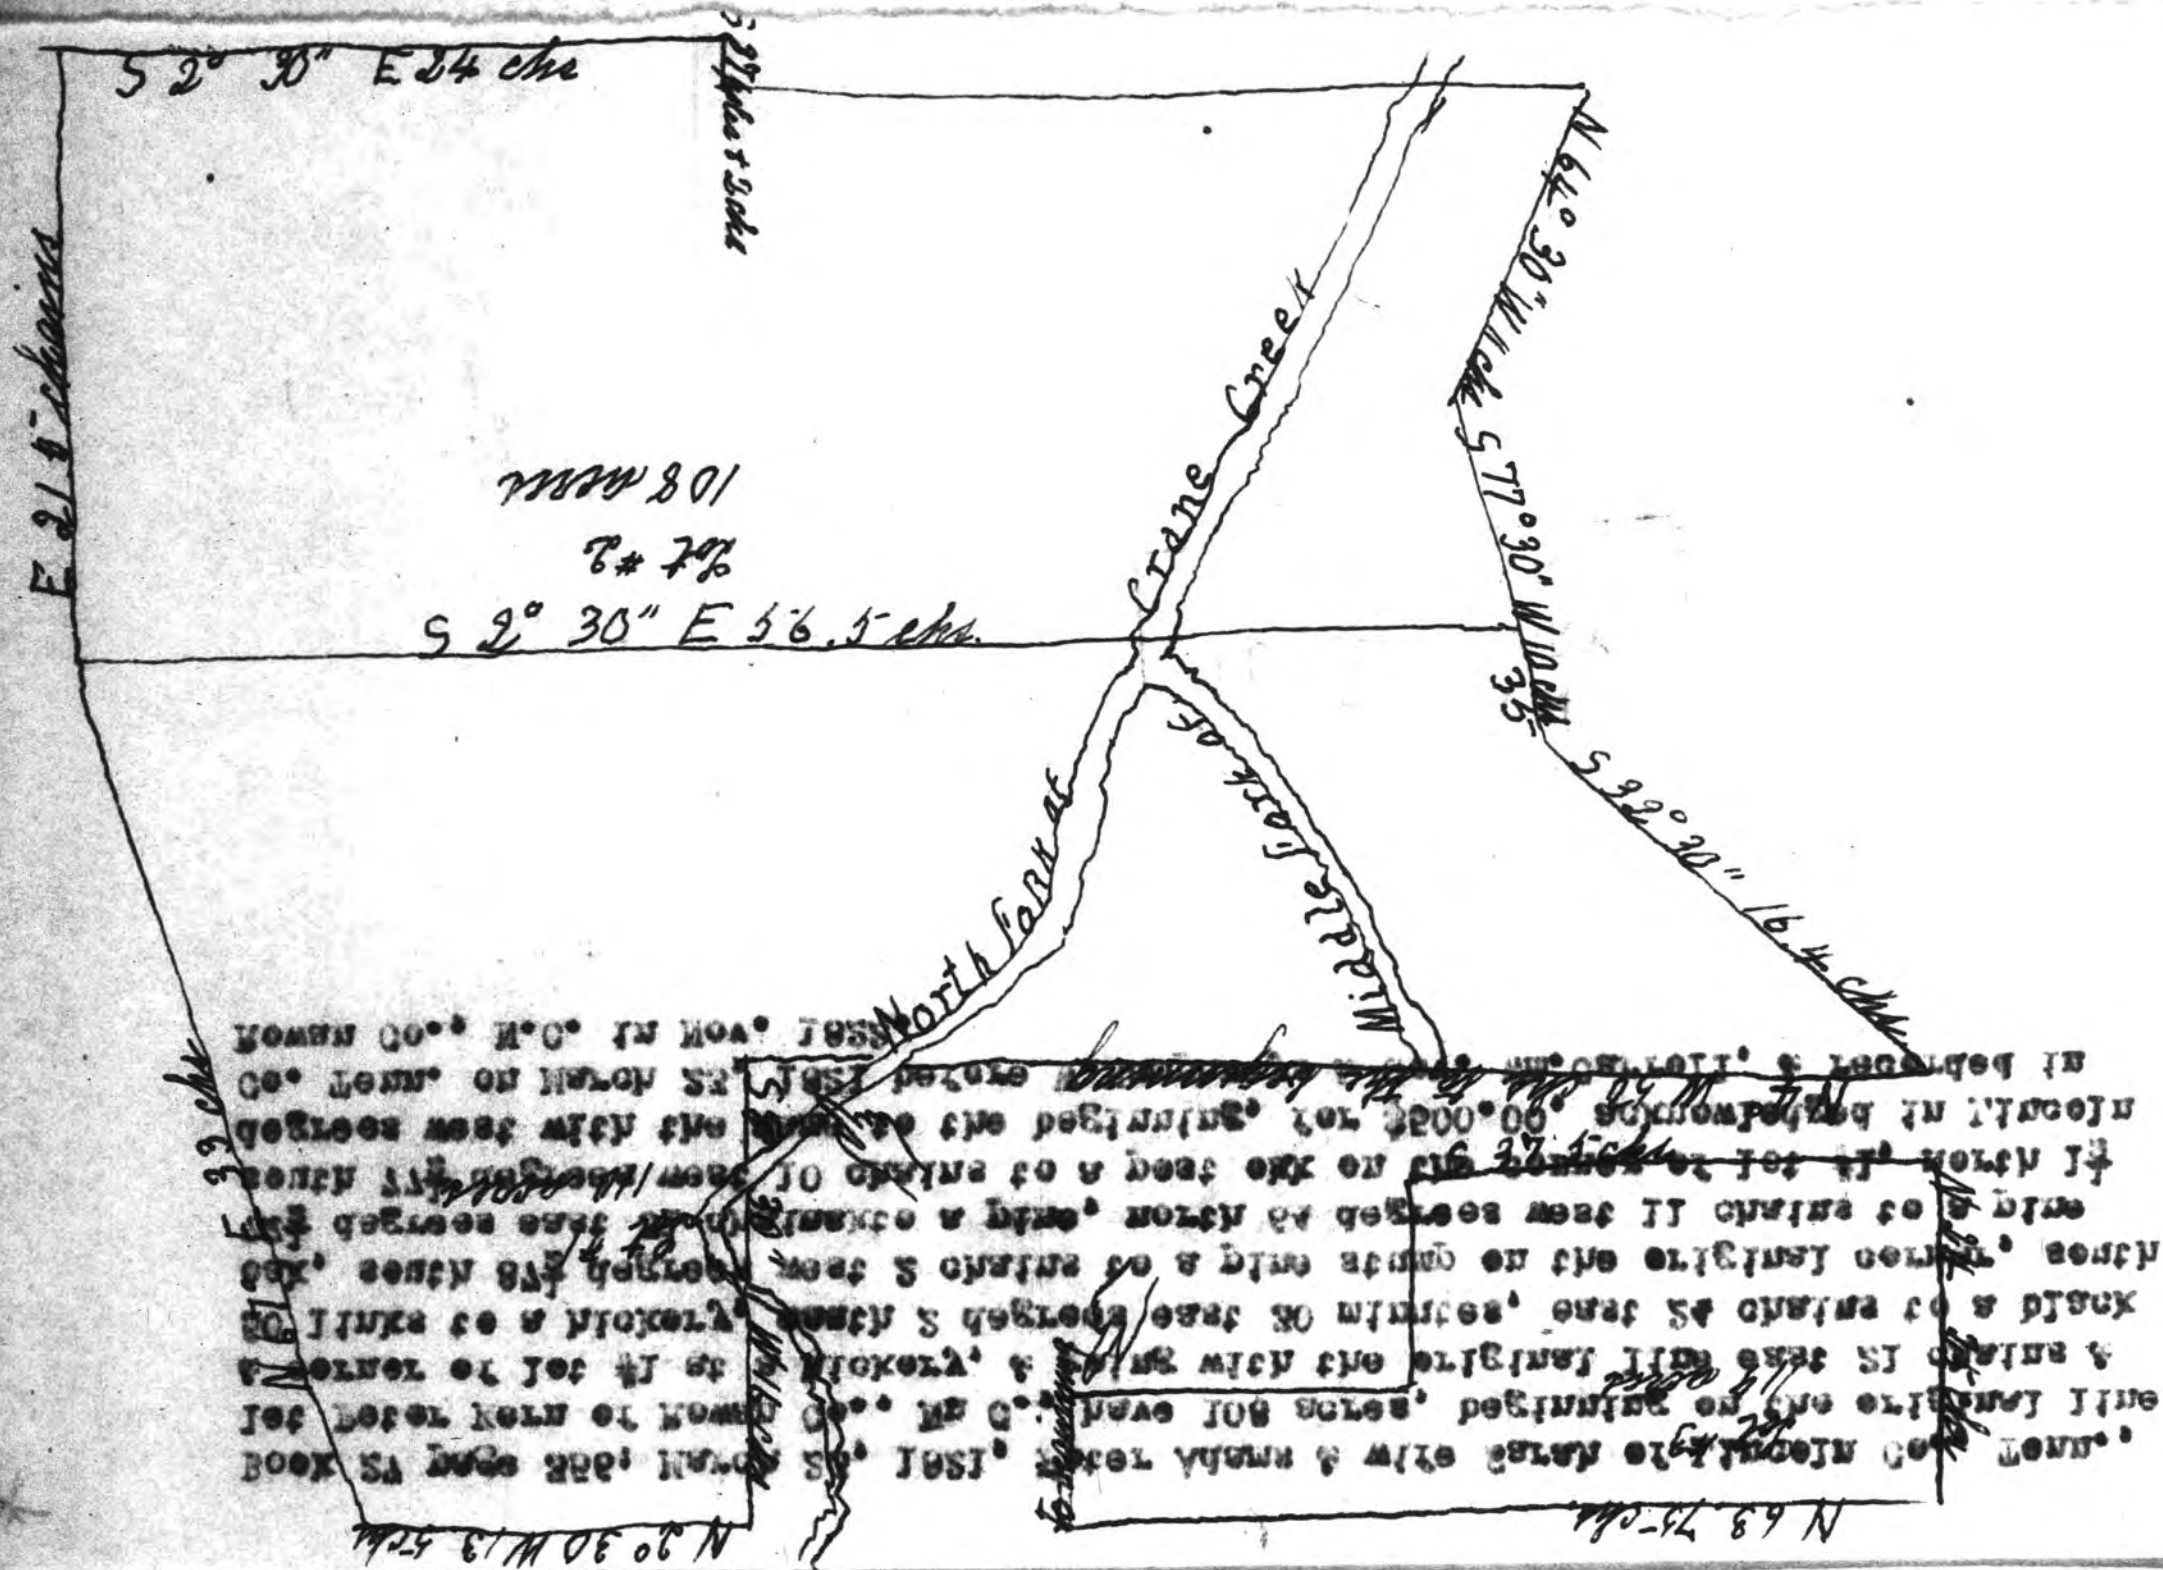 S 2° 30" E 24 chs
S 87 & 2 chs
E 21 5 chains
N 64° 30" W 11 chs
S 77° 30" W 10 chs
35
Crane Creek
108 acres
Lot #2
S 2° 30" E 56.5 chs.
North Fork of
Middle Fork of
33 chs
N 2° 30 W 13 5 chs
N 63.75 chs
S 37.5 chs
Lot #1
Lot #3
Book 27 page 356, March 23, 1821, Peter Adams & wife Sarah of Lincoln Co., Tenn.,
let Peter Kern of Rowan Co., N. C., have 108 acres, beginning on the original line
& corner of lot #1 at a hickory, & running with the original line east 21 chains &
50 links to a hickory, south 2 degrees east 30 minutes, east 24 chains to a black
oak, south 87½ degrees west 2 chains to a pine stump on the original corner, south
degrees east to a pine, north 64 degrees west 11 chains to a pine
south 77½ degrees west 10 chains to a post oak on the corner of lot #1, North 1½
degrees west with the line to the beginning, for $500.00, acknowledged in Lincoln
Co. Tenn. on March 23, 1821 before Wm. Carroll, & recorded in
Rowan Co., N.C. in Nov. 1822.